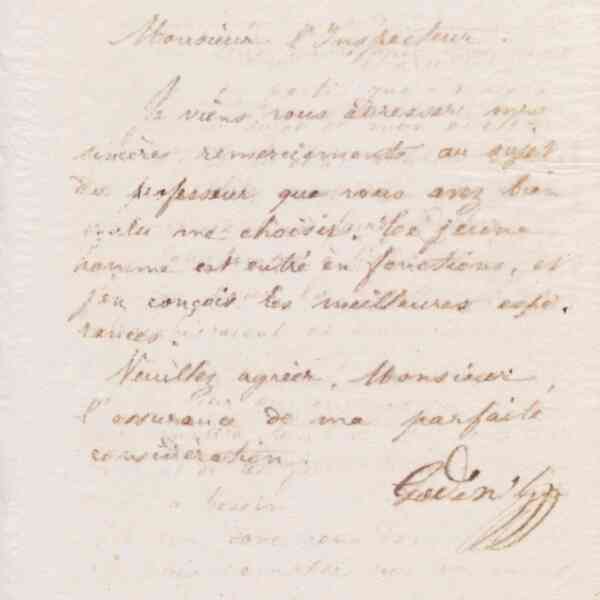 Monsieur l'Inspecteur.
Je viens vous adresser mes
sincères remerciements au sujet
du professeur que vous avez bien
voulu me choisir. Ce jeune
homme est entré en fonctions, et
j'en conçois les meilleures espé-
rances.
Veuillez agréer, Monsieur,
l'assurance de ma parfaite
considération.
Godin
a besoin